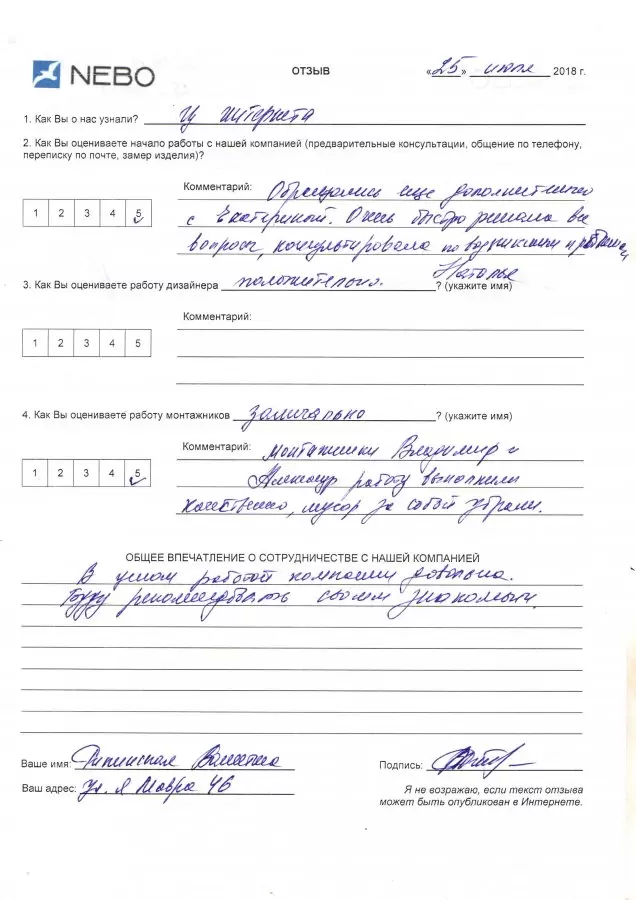 NEBO
ОТЗЫВ
«25» июля 2018 г.
1. Как Вы о нас узнали? Из интернета
2. Как Вы оцениваете начало работы с нашей компании (предварительные консультации, общение по телефону,
переписку по почте, замер изделия)?
Комментарий: Обращались еще дополнительно
1 2 3 4 5
с Екатериной. Очень быстро решала все
вопросы, консультировала по
Наталья
3. Как Вы оцениваете работу дизайнера положительно. ? (укажите имя)
Комментарий:
1 2 3 4 5
4. Как Вы оцениваете работу монтажников замечательно ? (укажите имя)
Комментарий: Монтажники Владимир и
1 2 3 4 5
Александр работу выполнили
качественно, мусор за собой убрали.
ОБЩЕЕ ВПЕЧАТЛЕНИЕ О СОТРУДНИЧЕСТВЕ С НАШЕЙ КОМПАНИЕЙ
В целом работой компании довольна.
Буду рекомендовать своим знакомым.
Ваше имя:
Подпись:
Ваш адрес: ул. Я Мавра 46
Я не возражаю, если текст отзыва
может быть опубликован в Интернете.